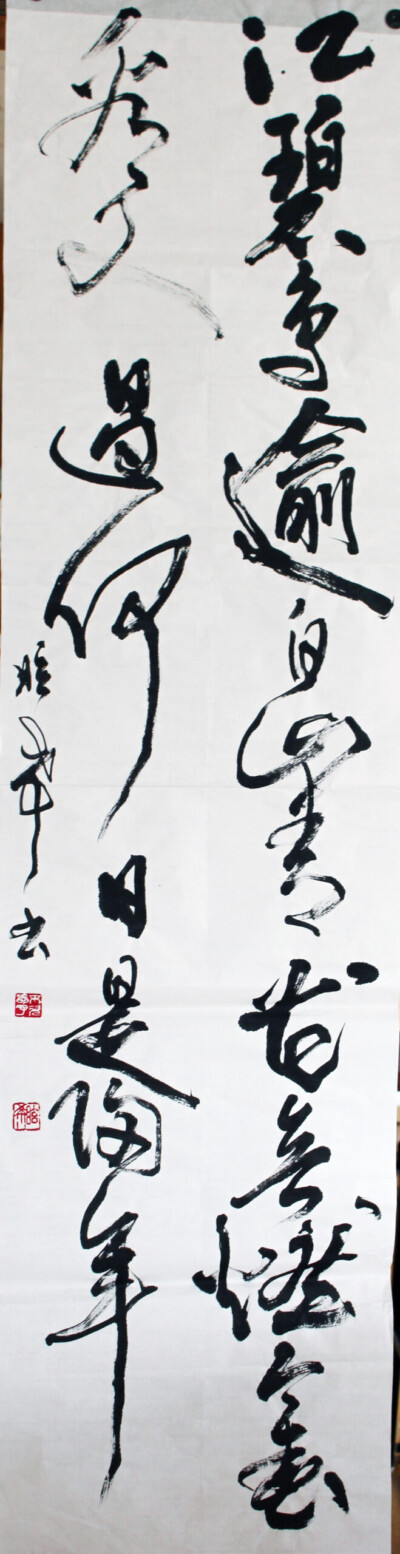 江碧鸟逾白山青花欲燃今春
看又過何日是归年
书